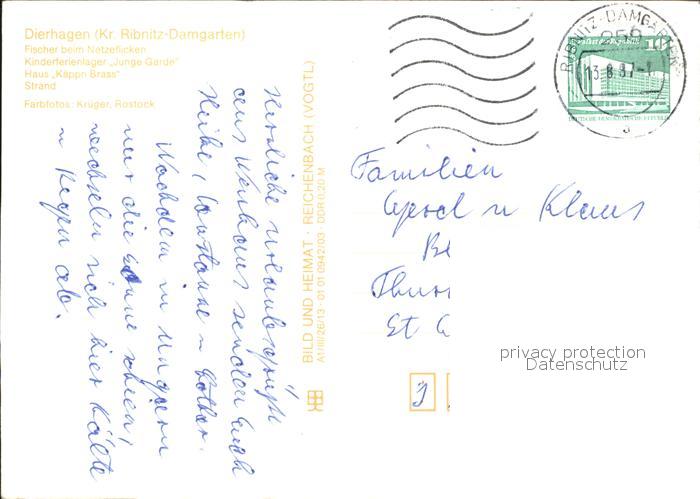 Dierhagen (Kr. Ribnitz-Damgarten)
Fischer beim Netzeflicken
Kinderferienlager „Junge Garde"
Haus „Käppn Brass"
Strand
Farbfotos: Krüger, Rostock
Herzliche Urlaubsgrüße
aus Neuhaus senden Euch
Heike, Constanze u Lothar.
Nachdem in Ungarn
nur die Sonne schien,
wechseln sich hier Kälte
u Regen ab.
BILD UND HEIMAT · REICHENBACH (VOGTL)
A1/III/26/13 · 01 01 0942/03 · DDR 0,20 M
RIBNITZ-DAMGARTEN
259
13.8.87
10
DEUTSCHE DEMOKRATISCHE REPUBLIK
Familien
u Klaus
Be
Thur
privacy protection
Datenschutz